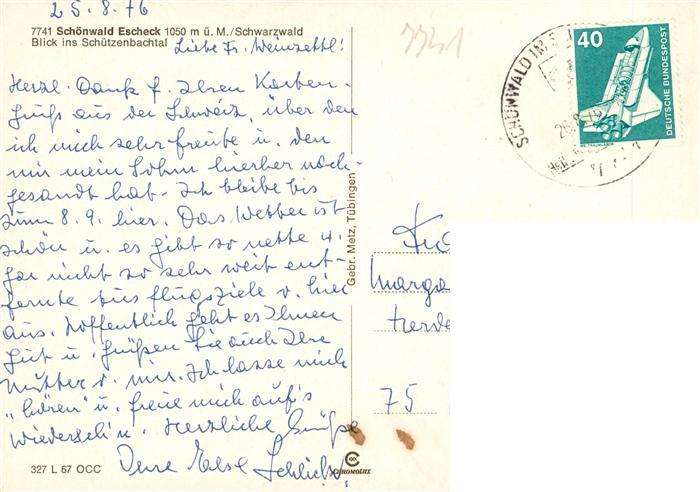 25.8.76
7741 Schönwald Escheck 1050 m ü. M./Schwarzwald
Blick ins Schützenbachtal
Liebe Fr. Weinzettl!
Herzl. Dank f. Ihren Karten-
gruß aus der Schweiz, über den
ich mich sehr freute u. den
mir mein Sohn hierher nach-
gesandt hat. Ich bleibe bis
zum 8.9. hier. Das Wetter ist
schön u. es gibt so nette u.
gar nicht so sehr weit ent-
fernte Ausflugsziele v. hier
aus. Hoffentlich geht es Ihnen
gut u. grüßen Sie auch Ihre
Mutter v. mir. Ich lasse mich
"hören" u. freue mich auf's
Wiederseh'n. Herzliche Grüße
Ilse
327 L 67 OCC
CHROMOLUX
Gebr. Metz, Tübingen
7741
SCHÖNWALD IM
40
DEUTSCHE BUNDESPOST
Marga
75